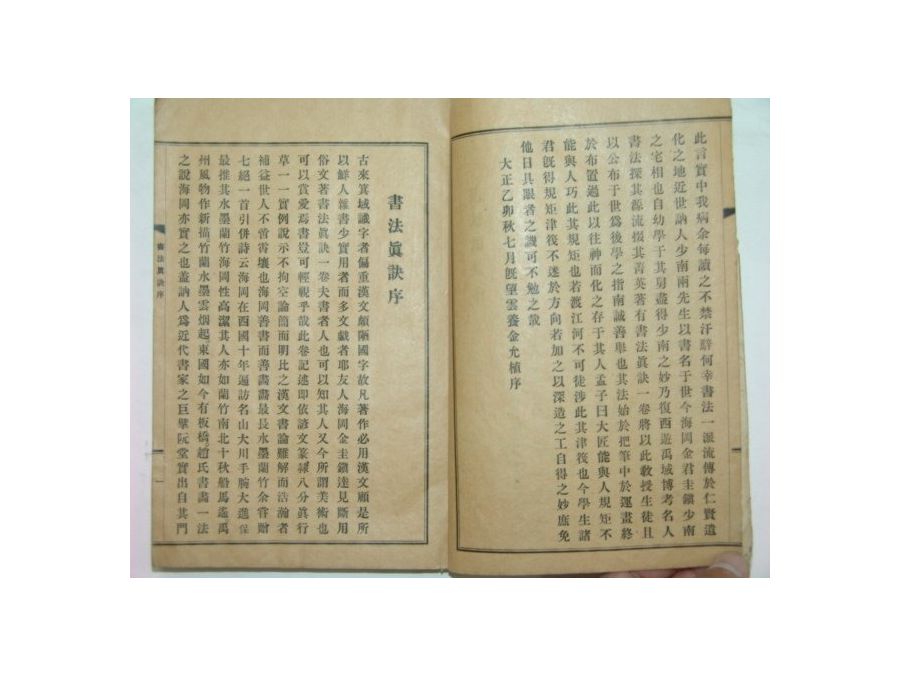 此言實中我病余每讀之不禁汗辭何幸書法一派流傳於仁賢遺
化之地近世訥人少南兩先生以書名于世今海岡金君圭鎭少南
之宅相也自幼學于其舅盡得少南之妙乃復西遊禹域博考名人
書法探其源流掇其菁英著有書法眞訣一卷將以此敎授生徒且
以公布于世爲後學之指南誠善擧也其法始於把筆中於運畫終
於布置過此以往神而化之存乎其人孟子曰大匠能與人規矩不
能與人巧此其規矩也若渡江河不可徒涉此其津筏也今學生諸
君旣得規矩津筏不迷於方向若加之以深造之工自得之妙庶免
他日具眼者之譏可不勉之哉
大正乙卯秋七月旣望雲養金允植序
書法眞訣序
古來箕域識字者偏重漢文頗陋國字故凡著作必用漢文顧是所
以鮮人雜書少實用者而多文戱者耶友人海岡金圭鎭達見斷用
俗文著書法眞訣一卷夫書者人也可以知其人又今所謂美術也
可以賞愛焉書豈可輕視乎哉此卷記述即依諺文篆隷八分眞行
草一一實例說示不拘空論簡而明比之漢文書論難解而浩瀚者
補益世人不啻霄壤也海岡善書而善畵畵最長水墨蘭竹余嘗贈
七絕一首引併詩云海岡在西國十年遍訪名山大川手腕大進
最推其水墨蘭竹海岡性高潔其人亦如蘭竹南北十秋船馬遙禹
州風物作新描竹蘭水墨雲烟起東國如今有板橋趙氏書畵一法
之說海岡亦實之也盖訥人爲近代書家之巨擘阮堂實出自其門
書法眞訣序
一